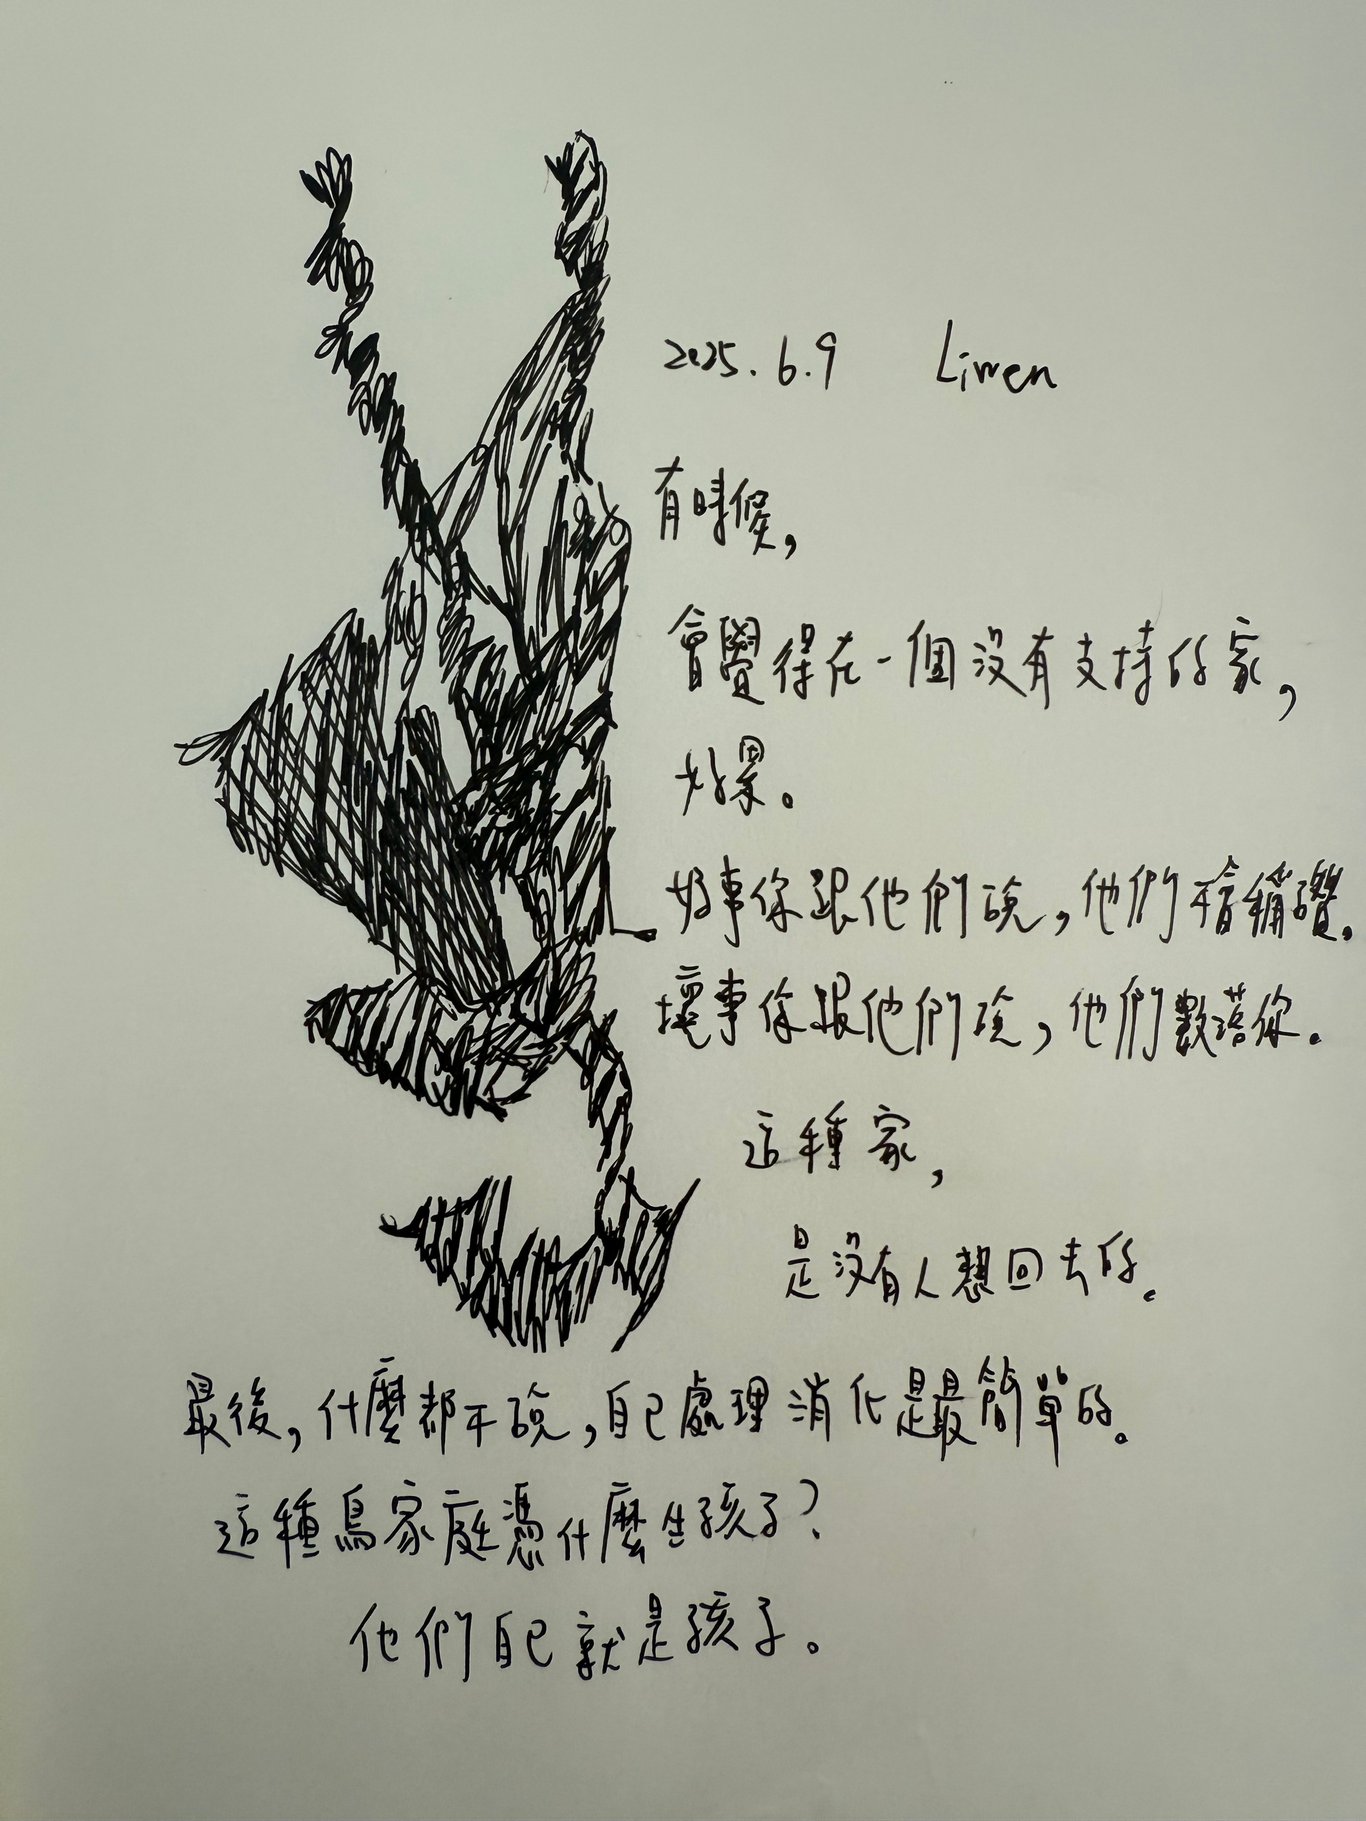 2025.6.9 Liwen
有時候,
會覺得在一個沒有支持的家,
好累。
好事你跟他們說,他們不會稱讚。
壞事你跟他們說,他們數落你。
這種家,
是沒有人想回去的。
最後,什麼都不說,自己處理消化是最簡單的。
這種鳥家庭憑什麼生孩子?
他們自己就是孩子。